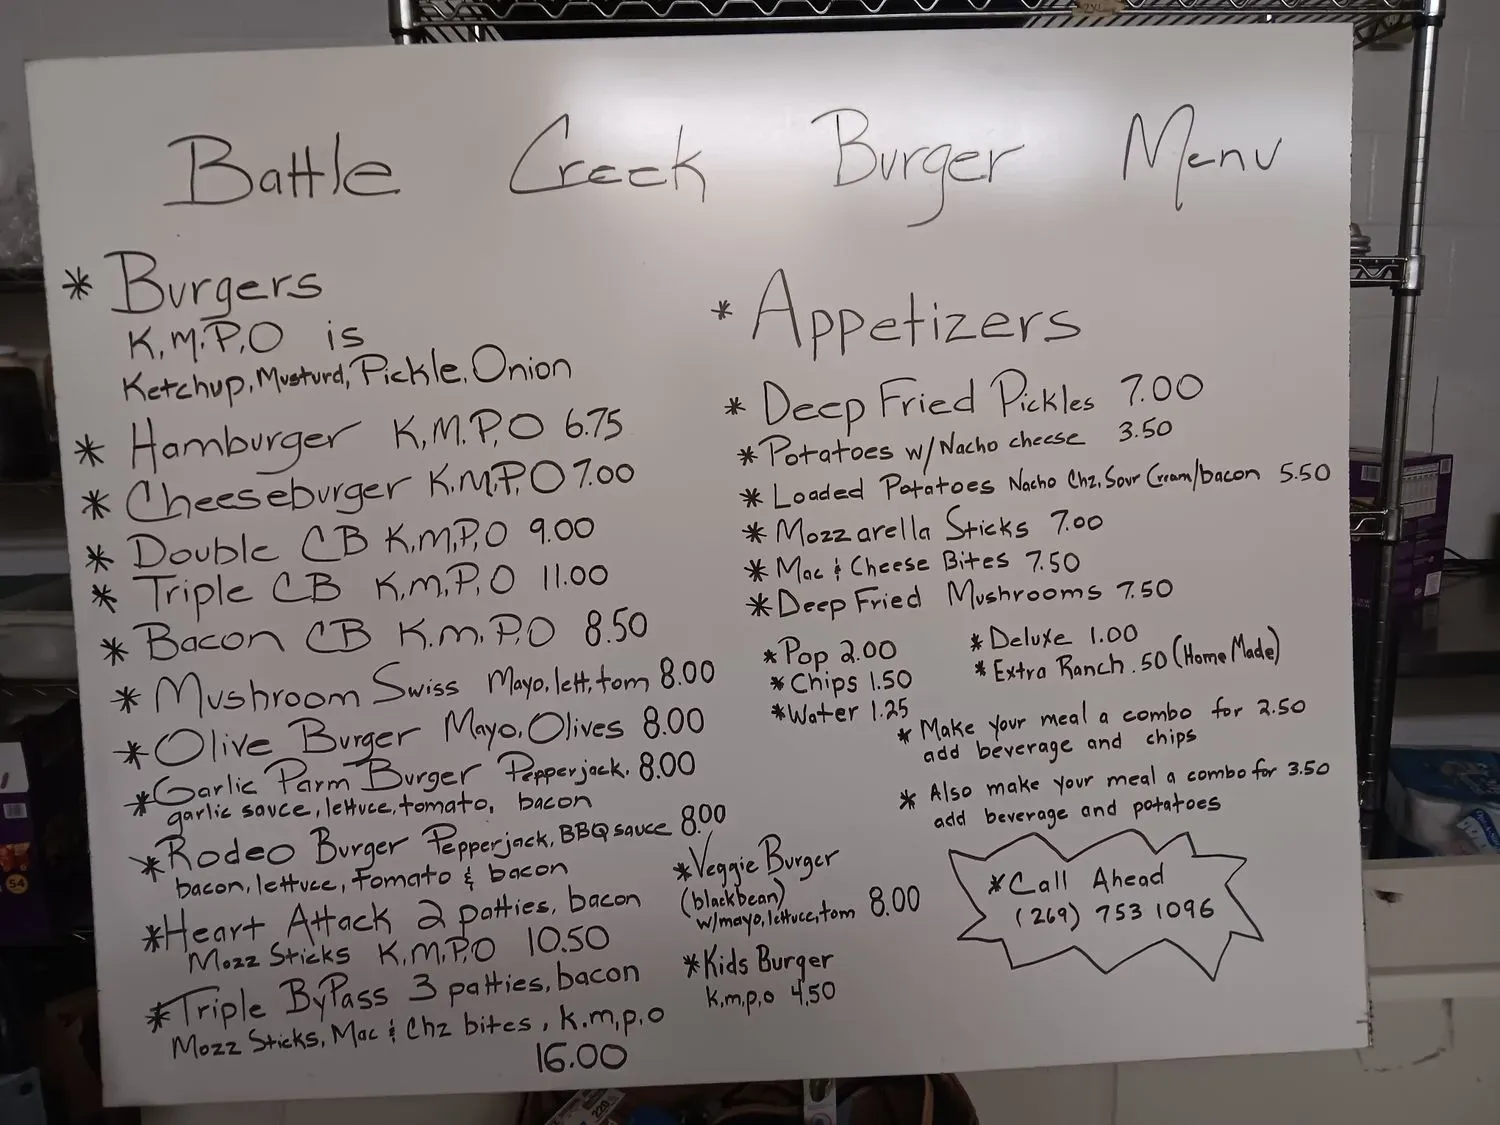 Battle Creek Burger Menu
* Burgers
K.M.P.O is
Ketchup, Musturd, Pickle, Onion
* Hamburger K.M.P.O 6.75
* Cheeseburger K.M.P.O 7.00
* Double CB K.M.P.O 9.00
* Triple CB K.M.P.O 11.00
* Bacon CB K.M.P.O 8.50
* Mushroom Swiss Mayo, lett, tom 8.00
* Olive Burger Mayo, Olives 8.00
* Garlic Parm Burger Pepperjack, 8.00
garlic sauce, lettuce, tomato, bacon
* Rodeo Burger Pepperjack, BBQ sauce 8.00
bacon, lettuce, Tomato & bacon
* Heart Attack 2 patties, bacon
Mozz Sticks K.M.P.O 10.50
* Triple ByPass 3 patties, bacon
Mozz Sticks, Mac & Chz bites, k.m.p.o
16.00
* Veggie Burger
(blackbean)
w/mayo, lettuce, tom 8.00
* Kids Burger
k.m.p.o 4.50
* Appetizers
* Deep Fried Pickles 7.00
* Potatoes w/ Nacho cheese 3.50
* Loaded Potatoes Nacho Chz, Sour Cream/bacon 5.50
* Mozzarella Sticks 7.00
* Mac & Cheese Bites 7.50
* Deep Fried Mushrooms 7.50
* Pop 2.00
* Chips 1.50
* Water 1.25
* Deluxe 1.00
* Extra Ranch .50 (Home Made)
* Make your meal a combo for 2.50
add beverage and chips
* Also make your meal a combo for 3.50
add beverage and potatoes
* Call Ahead
(269) 753 1096
54
220